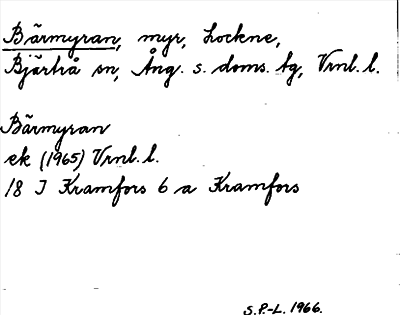 Bärmyran, myr, Lockne,
Bjärtrå sn, Ång. s. doms. tg, Vrnl. l.
Bärmyran
ek (1965) Vrnl. l.
18 I Kramfors 6 a Kramfors
S.P.-L. 1966.